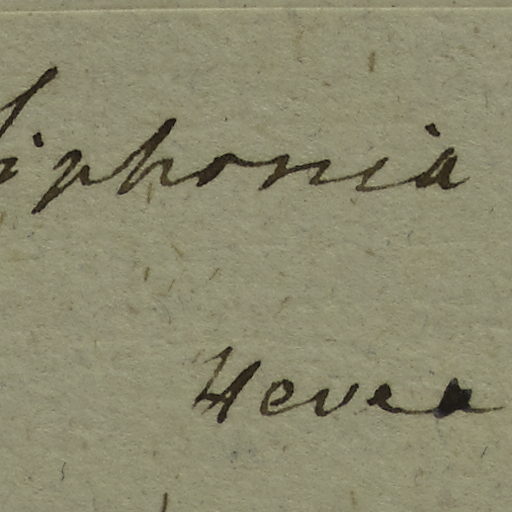 Siphonia
Hevea